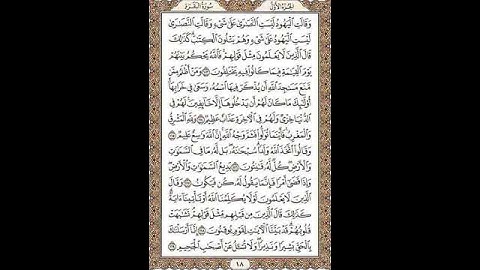 الجزء الأول سورة البقرة
وَقَالَتِ ٱلْيَهُودُ لَيْسَتِ ٱلنَّصَٰرَىٰ عَلَىٰ شَىْءٍ وَقَالَتِ ٱلنَّصَٰرَىٰ
لَيْسَتِ ٱلْيَهُودُ عَلَىٰ شَىْءٍ وَهُمْ يَتْلُونَ ٱلْكِتَٰبَ كَذَٰلِكَ
قَالَ ٱلَّذِينَ لَا يَعْلَمُونَ مِثْلَ قَوْلِهِمْ فَٱللَّهُ يَحْكُمُ بَيْنَهُمْ
يَوْمَ ٱلْقِيَٰمَةِ فِيمَا كَانُوا۟ فِيهِ يَخْتَلِفُونَ ١١٣ وَمَنْ أَظْلَمُ مِمَّن
مَّنَعَ مَسَٰجِدَ ٱللَّهِ أَن يُذْكَرَ فِيهَا ٱسْمُهُۥ وَسَعَىٰ فِى خَرَابِهَآ
أُو۟لَٰٓئِكَ مَا كَانَ لَهُمْ أَن يَدْخُلُوهَآ إِلَّا خَآئِفِينَ لَهُمْ فِى
ٱلدُّنْيَا خِزْىٌ وَلَهُمْ فِى ٱلْءَاخِرَةِ عَذَابٌ عَظِيمٌ ١١٤ وَلِلَّهِ ٱلْمَشْرِقُ
وَٱلْمَغْرِبُ فَأَيْنَمَا تُوَلُّوا۟ فَثَمَّ وَجْهُ ٱللَّهِ إِنَّ ٱللَّهَ وَٰسِعٌ عَلِيمٌ ١١٥
وَقَالُوا۟ ٱتَّخَذَ ٱللَّهُ وَلَدًا سُبْحَٰنَهُۥ بَل لَّهُۥ مَا فِى ٱلسَّمَٰوَٰتِ
وَٱلْأَرْضِ كُلٌّ لَّهُۥ قَٰنِتُونَ ١١٦ بَدِيعُ ٱلسَّمَٰوَٰتِ وَٱلْأَرْضِ
وَإِذَا قَضَىٰٓ أَمْرًا فَإِنَّمَا يَقُولُ لَهُۥ كُن فَيَكُونُ ١١٧ وَقَالَ
ٱلَّذِينَ لَا يَعْلَمُونَ لَوْلَا يُكَلِّمُنَا ٱللَّهُ أَوْ تَأْتِينَآ ءَايَةٌ
كَذَٰلِكَ قَالَ ٱلَّذِينَ مِن قَبْلِهِم مِّثْلَ قَوْلِهِمْ تَشَٰبَهَتْ
قُلُوبُهُمْ قَدْ بَيَّنَّا ٱلْءَايَٰتِ لِقَوْمٍ يُوقِنُونَ ١١٨ إِنَّآ أَرْسَلْنَٰكَ
بِٱلْحَقِّ بَشِيرًا وَنَذِيرًا وَلَا تُسْـَٔلُ عَنْ أَصْحَٰبِ ٱلْجَحِيمِ ١١٩
١٨